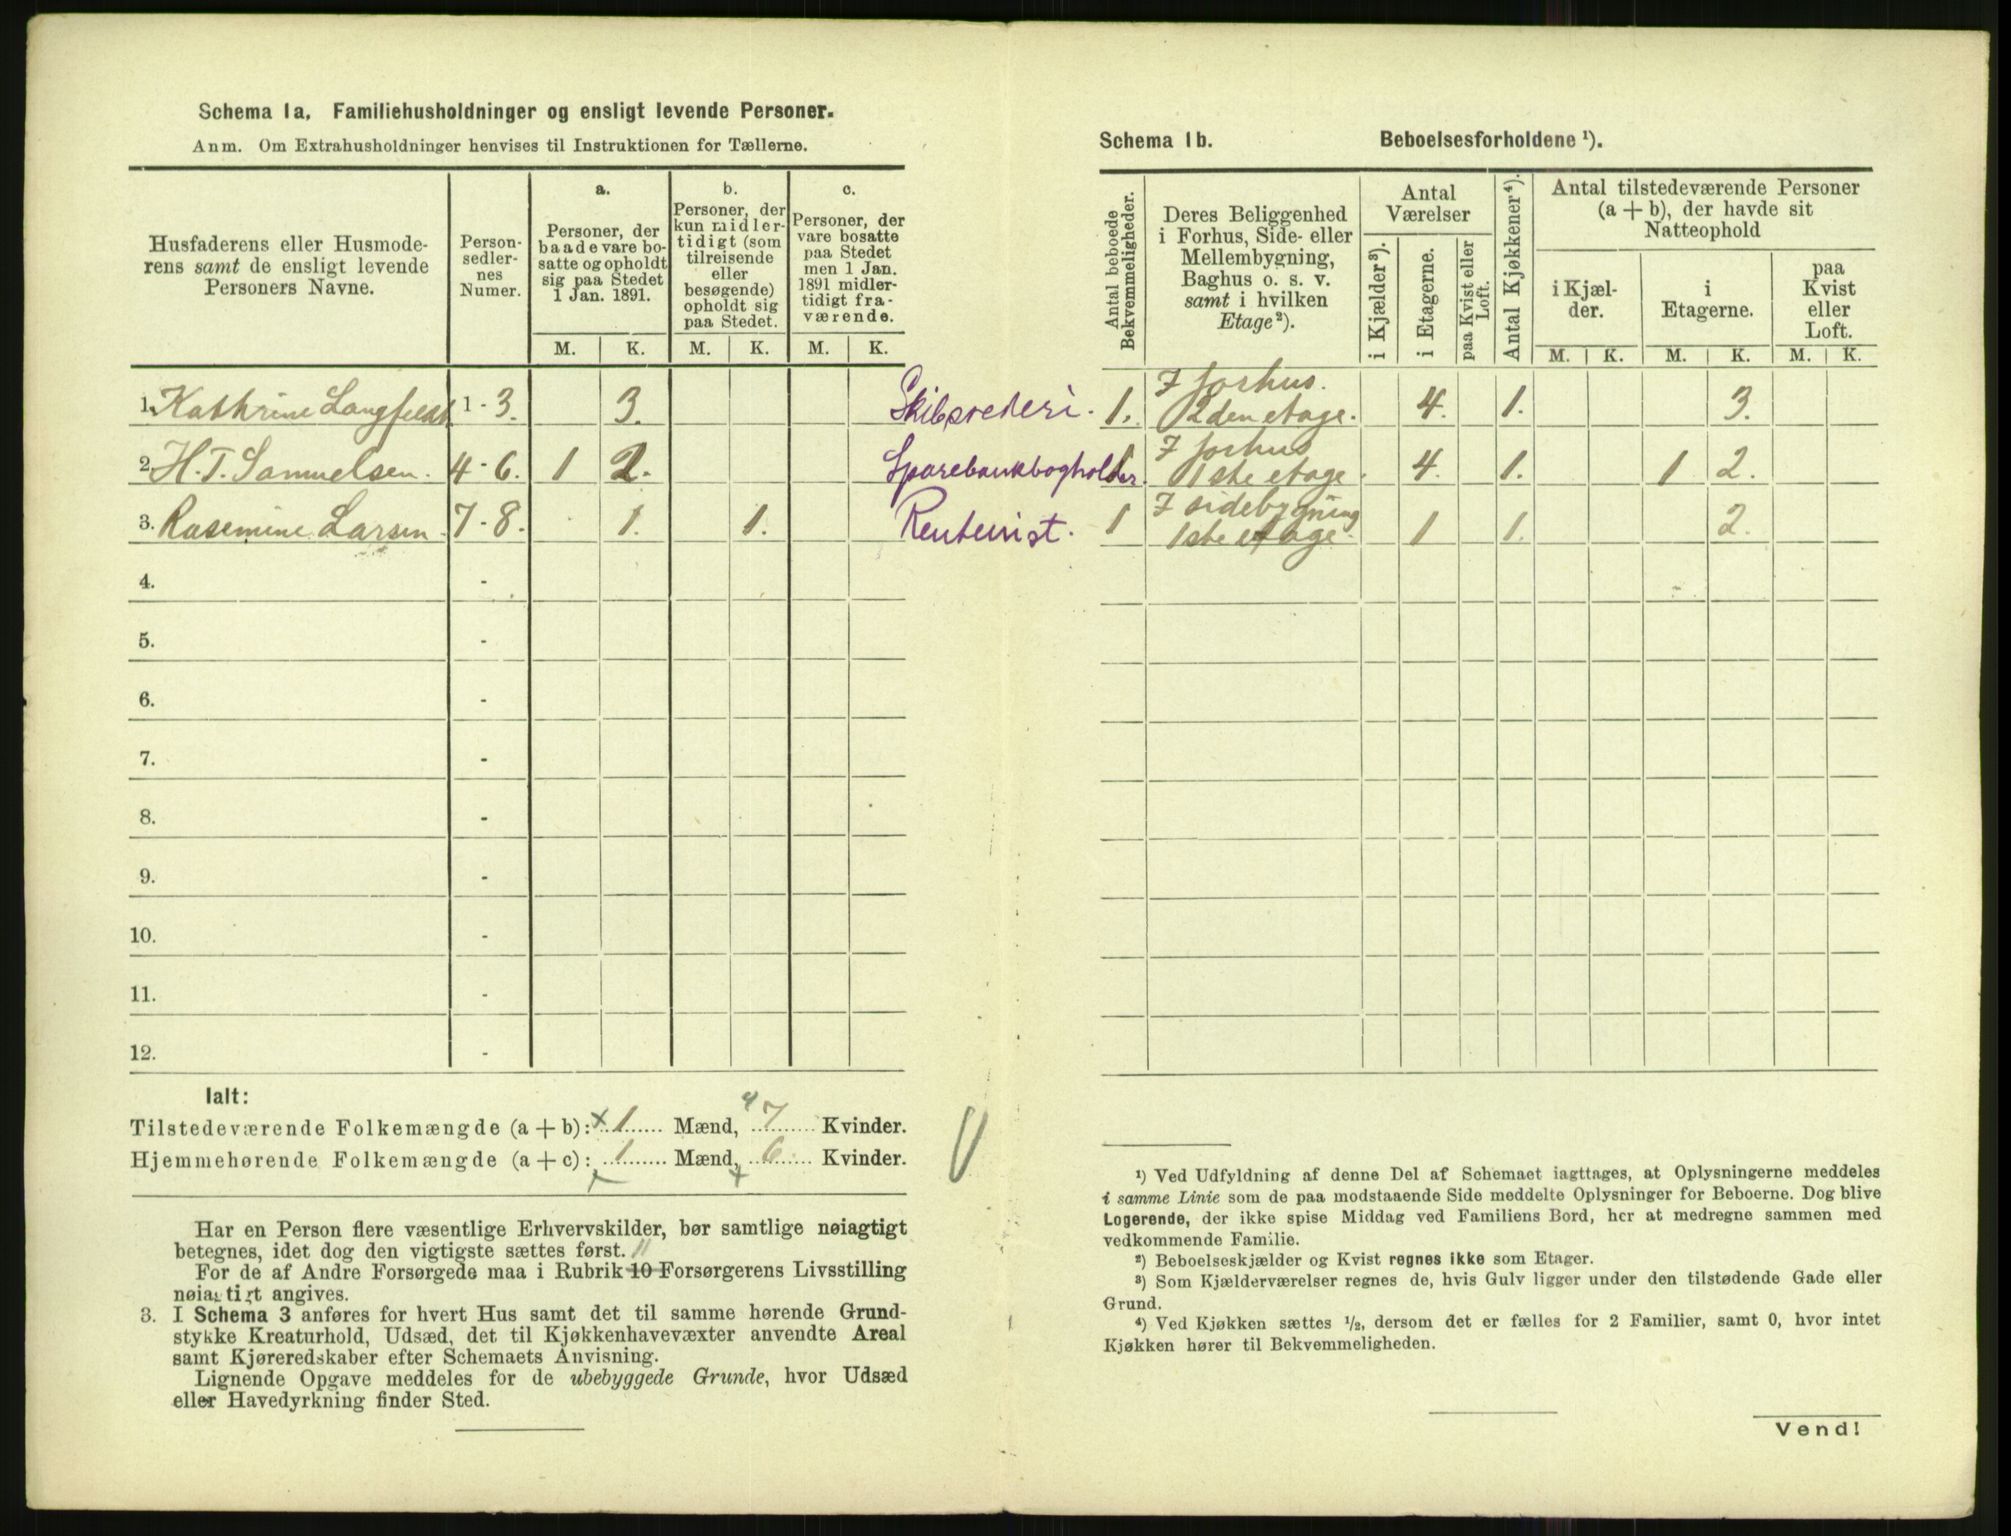 Schema 1a. Familiehusholdninger og ensligt levende Personer.
Anm. Om Extrahusholdninger henvises til Instruktionen for Tællerne.
Husfaderens eller Husmoderens samt de ensligt levende Personers Navne.
Personsedlernes Numer.
a.
Personer, der baade vare bosatte og opholdt sig paa Stedet 1 Jan. 1891.
b.
Personer, der kun midlertidigt (som tilreisende eller besøgende) opholdt sig paa Stedet.
c.
Personer, der vare bosatte paa Stedet men 1 Jan. 1891 midlertidigt fraværende.
M. K. M. K. M. K.
1. Kathrine Langfeldt 1 - 3. 3.
2. H. T. Samuelsen. 4 - 6. 1 2.
3. Rasemine Larsen. 7 - 8. 1. 1.
4. -
5. -
6. -
7. -
8. -
9. -
10. -
11. -
12. -
Ialt:
Tilstedeværende Folkemængde (a + b): × 1 Mænd, 7 Kvinder.
Hjemmehørende Folkemængde (a + c): 1 Mænd, 6 Kvinder.
Har en Person flere væsentlige Erhvervskilder, bør samtlige nøiagtigt
betegnes, idet dog den vigtigste sættes først. 11
For de af Andre Forsørgede maa i Rubrik 10 Forsørgerens Livsstilling
nøiagtigt angives.
3. I Schema 3 anføres for hvert Hus samt det til samme hørende Grund-
stykke Kreaturhold, Udsæd, det til Kjøkkenhavevæxter anvendte Areal
samt Kjøreredskaber efter Schemaets Anvisning.
Lignende Opgave meddeles for de ubebyggede Grunde, hvor Udsæd
eller Havedyrkning finder Sted.
Schema 1b. Beboelsesforholdene ¹).
Antal beboede Bekvemmeligheder.
Deres Beliggenhed i Forhus, Side- eller Mellembygning, Baghus o. s. v. samt i hvilken Etage ²).
Antal Værelser
i Kjælder ³).
i Etagerne.
paa Kvist eller Loft.
Antal Kjøkkener ⁴).
Antal tilstedeværende Personer (a + b), der havde sit Natteophold
i Kjælder.
i Etagerne.
paa Kvist eller Loft.
M. K. M. K. M. K.
Skibsrederi. 1. I forhus. 2den etage. 4. 1. 3.
Sparebankbogholder 1 I forhus 1ste etage. 4. 1. 1 2.
Rentenist. 1 I sidebygning 1ste etage. 1 1. 2.
¹) Ved Udfyldning af denne Del af Schemaet iagttages, at Oplysningerne meddeles
i samme Linie som de paa modstaaende Side meddelte Oplysninger for Beboerne. Dog blive
Logerende, der ikke spise Middag ved Familiens Bord, her at medregne sammen med
vedkommende Familie.
²) Beboelseskjælder og Kvist regnes ikke som Etager.
³) Som Kjælderværelser regnes de, hvis Gulv ligger under den tilstødende Gade eller
Grund.
⁴) Ved Kjøkken sættes ½, dersom det er fælles for 2 Familier, samt 0, hvor intet
Kjøkken hører til Bekvemmeligheden.
Vend!